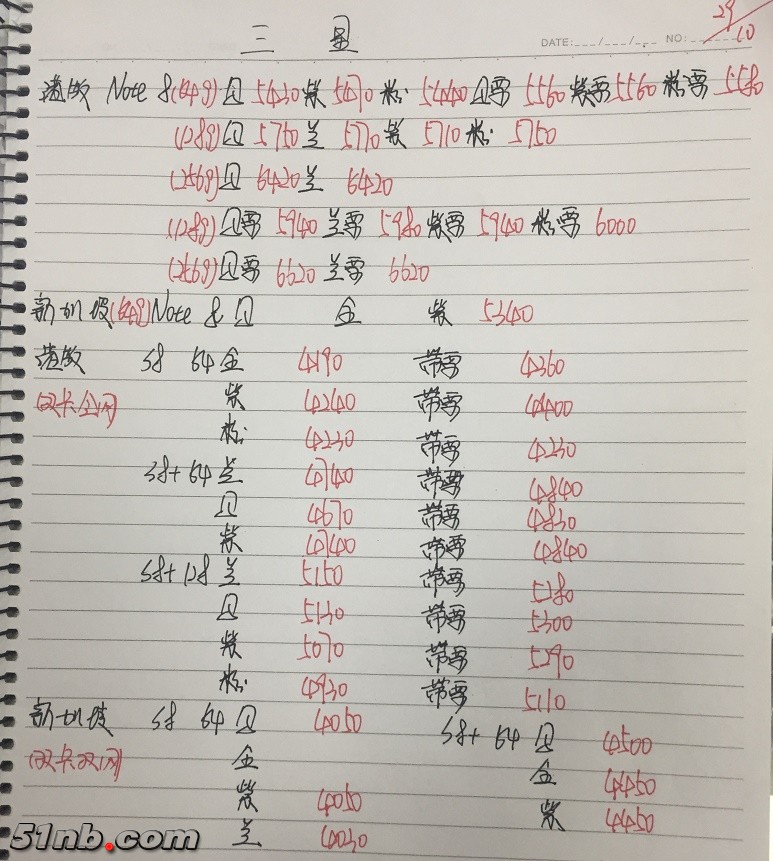 三星
DATE:___/___/___ NO:
29/10
港版 Note 8(64g) 贝 5430 紫 5470 粉 5440 贝票 5560 紫票 5560 粉票 5580
(128g) 贝 5750 兰 5770 紫 5710 粉 5750
(256g) 贝 6420 兰 6420
(128g) 贝票 5940 兰票 5980 紫票 5940 粉票 6000
(256g) 贝票 6620 兰票 6620
新加坡(64g) Note 8 贝 金 紫 5340
港版 S8 64 金 4190 带票 4360
双卡全网 紫 4240 带票 4400
粉 4230 带票 4230
S8+ 64 兰 4740 带票 4840
贝 4670 带票 4830
紫 4740 带票 4840
S8+ 128 兰 5150 带票 5280
贝 5130 带票 5300
紫 5070 带票 5290
粉 4930 带票 5110
新加坡 S8 64 贝 4050 S8+ 64 贝 4500
(双卡双网) 金 金 4450
紫 4050 紫 4450
兰 4030
51nb.com